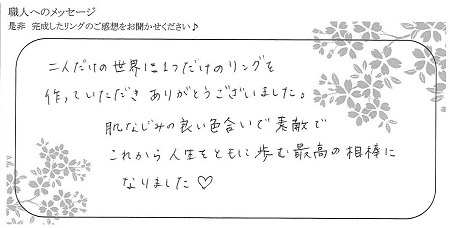 職人へのメッセージ
是非 完成したリングのご感想をお聞かせください♪
二人だけの世界に1つだけのリングを
作っていただきありがとうございました。
肌なじみの良い色合いで素敵で
これから人生をともに歩む最高の相棒に
なりました♡